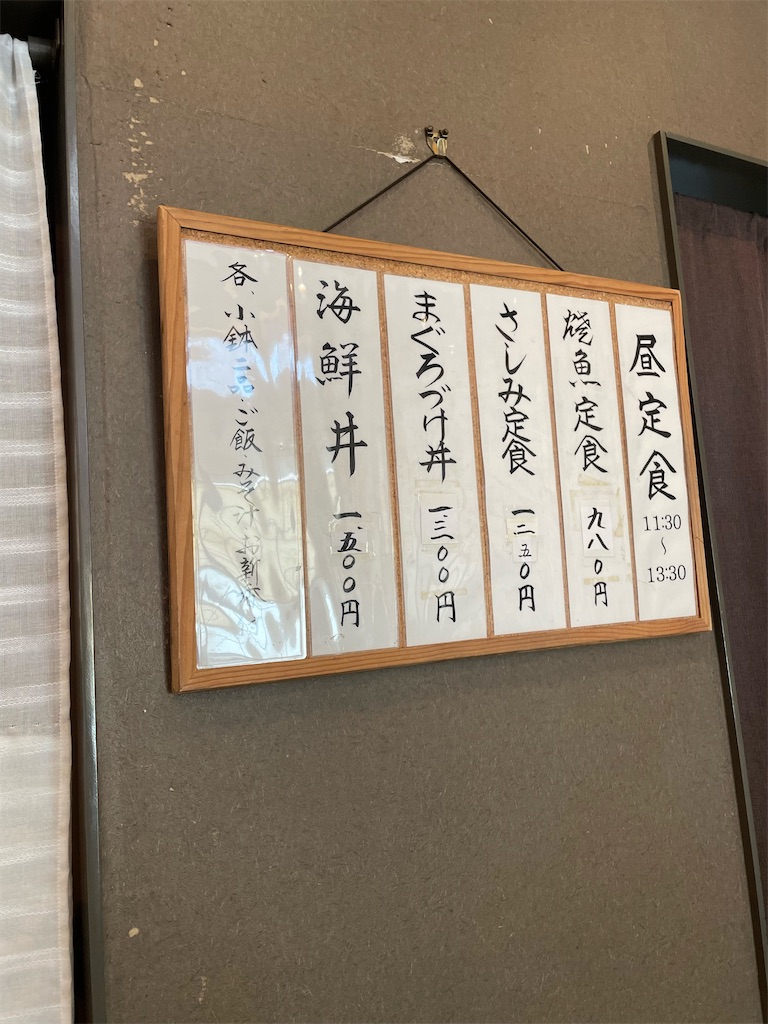 昼定食
11:30
～
13:30
焼魚定食 九八〇円
さしみ定食 一二五〇円
まぐろづけ丼 一、三〇〇円
海鮮丼 一、五〇〇円
各、小鉢二品・ご飯・みそ汁 お新香。